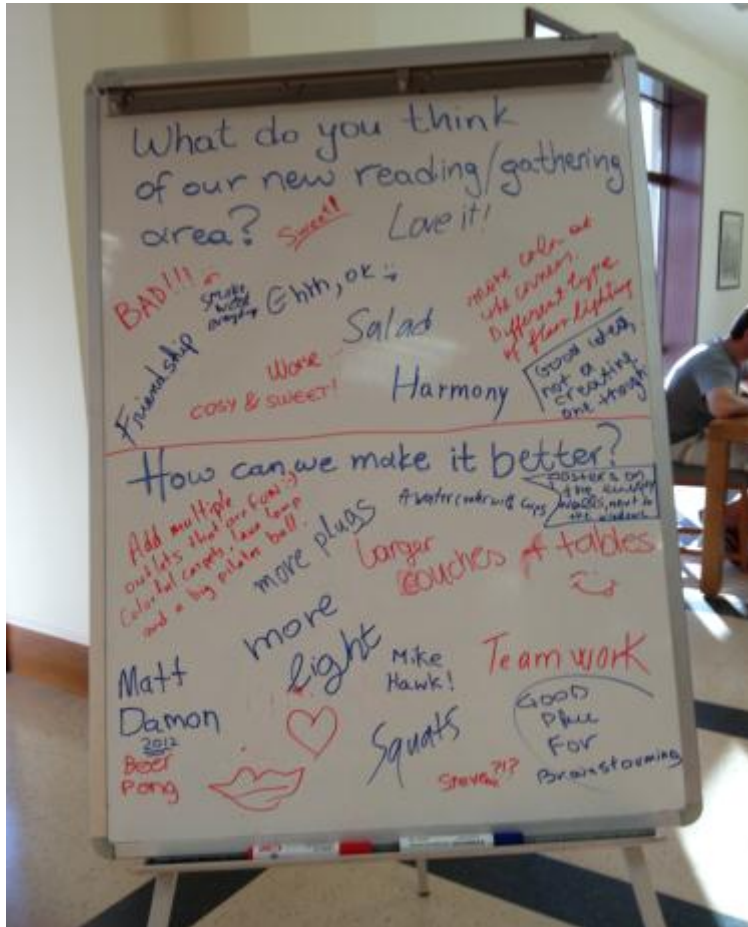 What do you think
of our new reading/gathering
area?
Sweet!!
Love it!
BAD!!!
smoke
weed
everyday
Ehhh, ok :;
more color on
the corners.
Different type
of floor lighting
Friendship
Salad
Work
COSY & SWEET!
Harmony
Good idea,
not a
creating
one though
How can we make it better?
Add multiple
outlets that are fun :)
Colorful carpets, lava lamp
and a big pilates ball.
more plugs
A water cooler with cups
posters on
the empty
walls, next to
the windows
Larger
couches & tables
more
light
Mike
Hawk!
Team work
Matt
Damon
2012
Beer
Pong
Squats
Steve?!?
GOOD
Place
For
Brainstorming